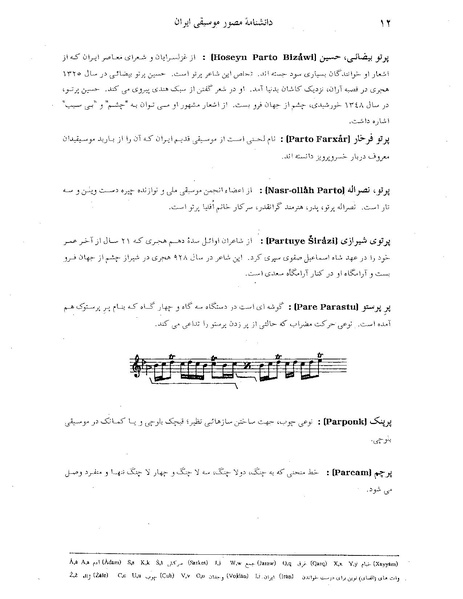 ۱۲
دانشنامهٔ مصور موسیقی ایران
پرتو بیضائی، حسین [Hoseyn Parto Bizāwi] : از غزلسرایان و شعرای معاصر ایران که از
اشعار او خوانندگان بسیاری سود جسته اند. تخلص این شاعر پرتو است. حسین پرتو بیضائی در سال ۱۳۲۵
هجری در قصبه آران، نزدیک کاشان بدنیا آمد. او در شعر گفتن از سبک هندی پیروی می کند. حسین پرتو،
در سال ۱۳۴۸ خورشیدی، چشم از جهان فرو بست. از اشعار مشهور او می توان به "چشم" و "بی سبب"
اشاره داشت.
پرتو فرخار [Parto Farxār] : نام لحنی است از موسیقی قدیم ایران که آن را از باربد موسیقیدان
معروف دربار خسروپرویز دانسته اند.
پرتو، نصراله [Nasr-ollāh Parto] : از اعضاء انجمن موسیقی ملی و نوازنده چیره دست ویلن و سه
تار است. نصراله پرتو، پدر، هنرمند گرانقدر، سرکار خانم آفلیا پرتو است.
پرتوی شیرازی [Partuye Širāzi] : از شاعران اوائل سدهٔ دهم هجری که ۲۱ سال از آخر عمر
خود را در عهد شاه اسماعیل صفوی سپری کرد. این شاعر در سال ۹۲۸ هجری در شیراز چشم از جهان فرو
بست و آرامگاه او در کنار آرامگاه سعدی است.
پر پرستو [Pare Parastu] : گوشه ای است در دستگاه سه گاه و چهار گاه که بنام پر پرستوک هم
آمده است. نوعی حرکت مضراب که حالتی از پر زدن پرستو را تداعی می کند.
پرپنک [Parponk] : نوعی چوب، جهت ساختن سازهائی نظیر؛ قیچک بلوچی و یا کمانک در موسیقی
بلوچی.
پرچم [Parcam] : خط منحنی که به چنگ، دولا چنگ، سه لا چنگ و چهار لا چنگ تنها و منفرد وصل
می شود.